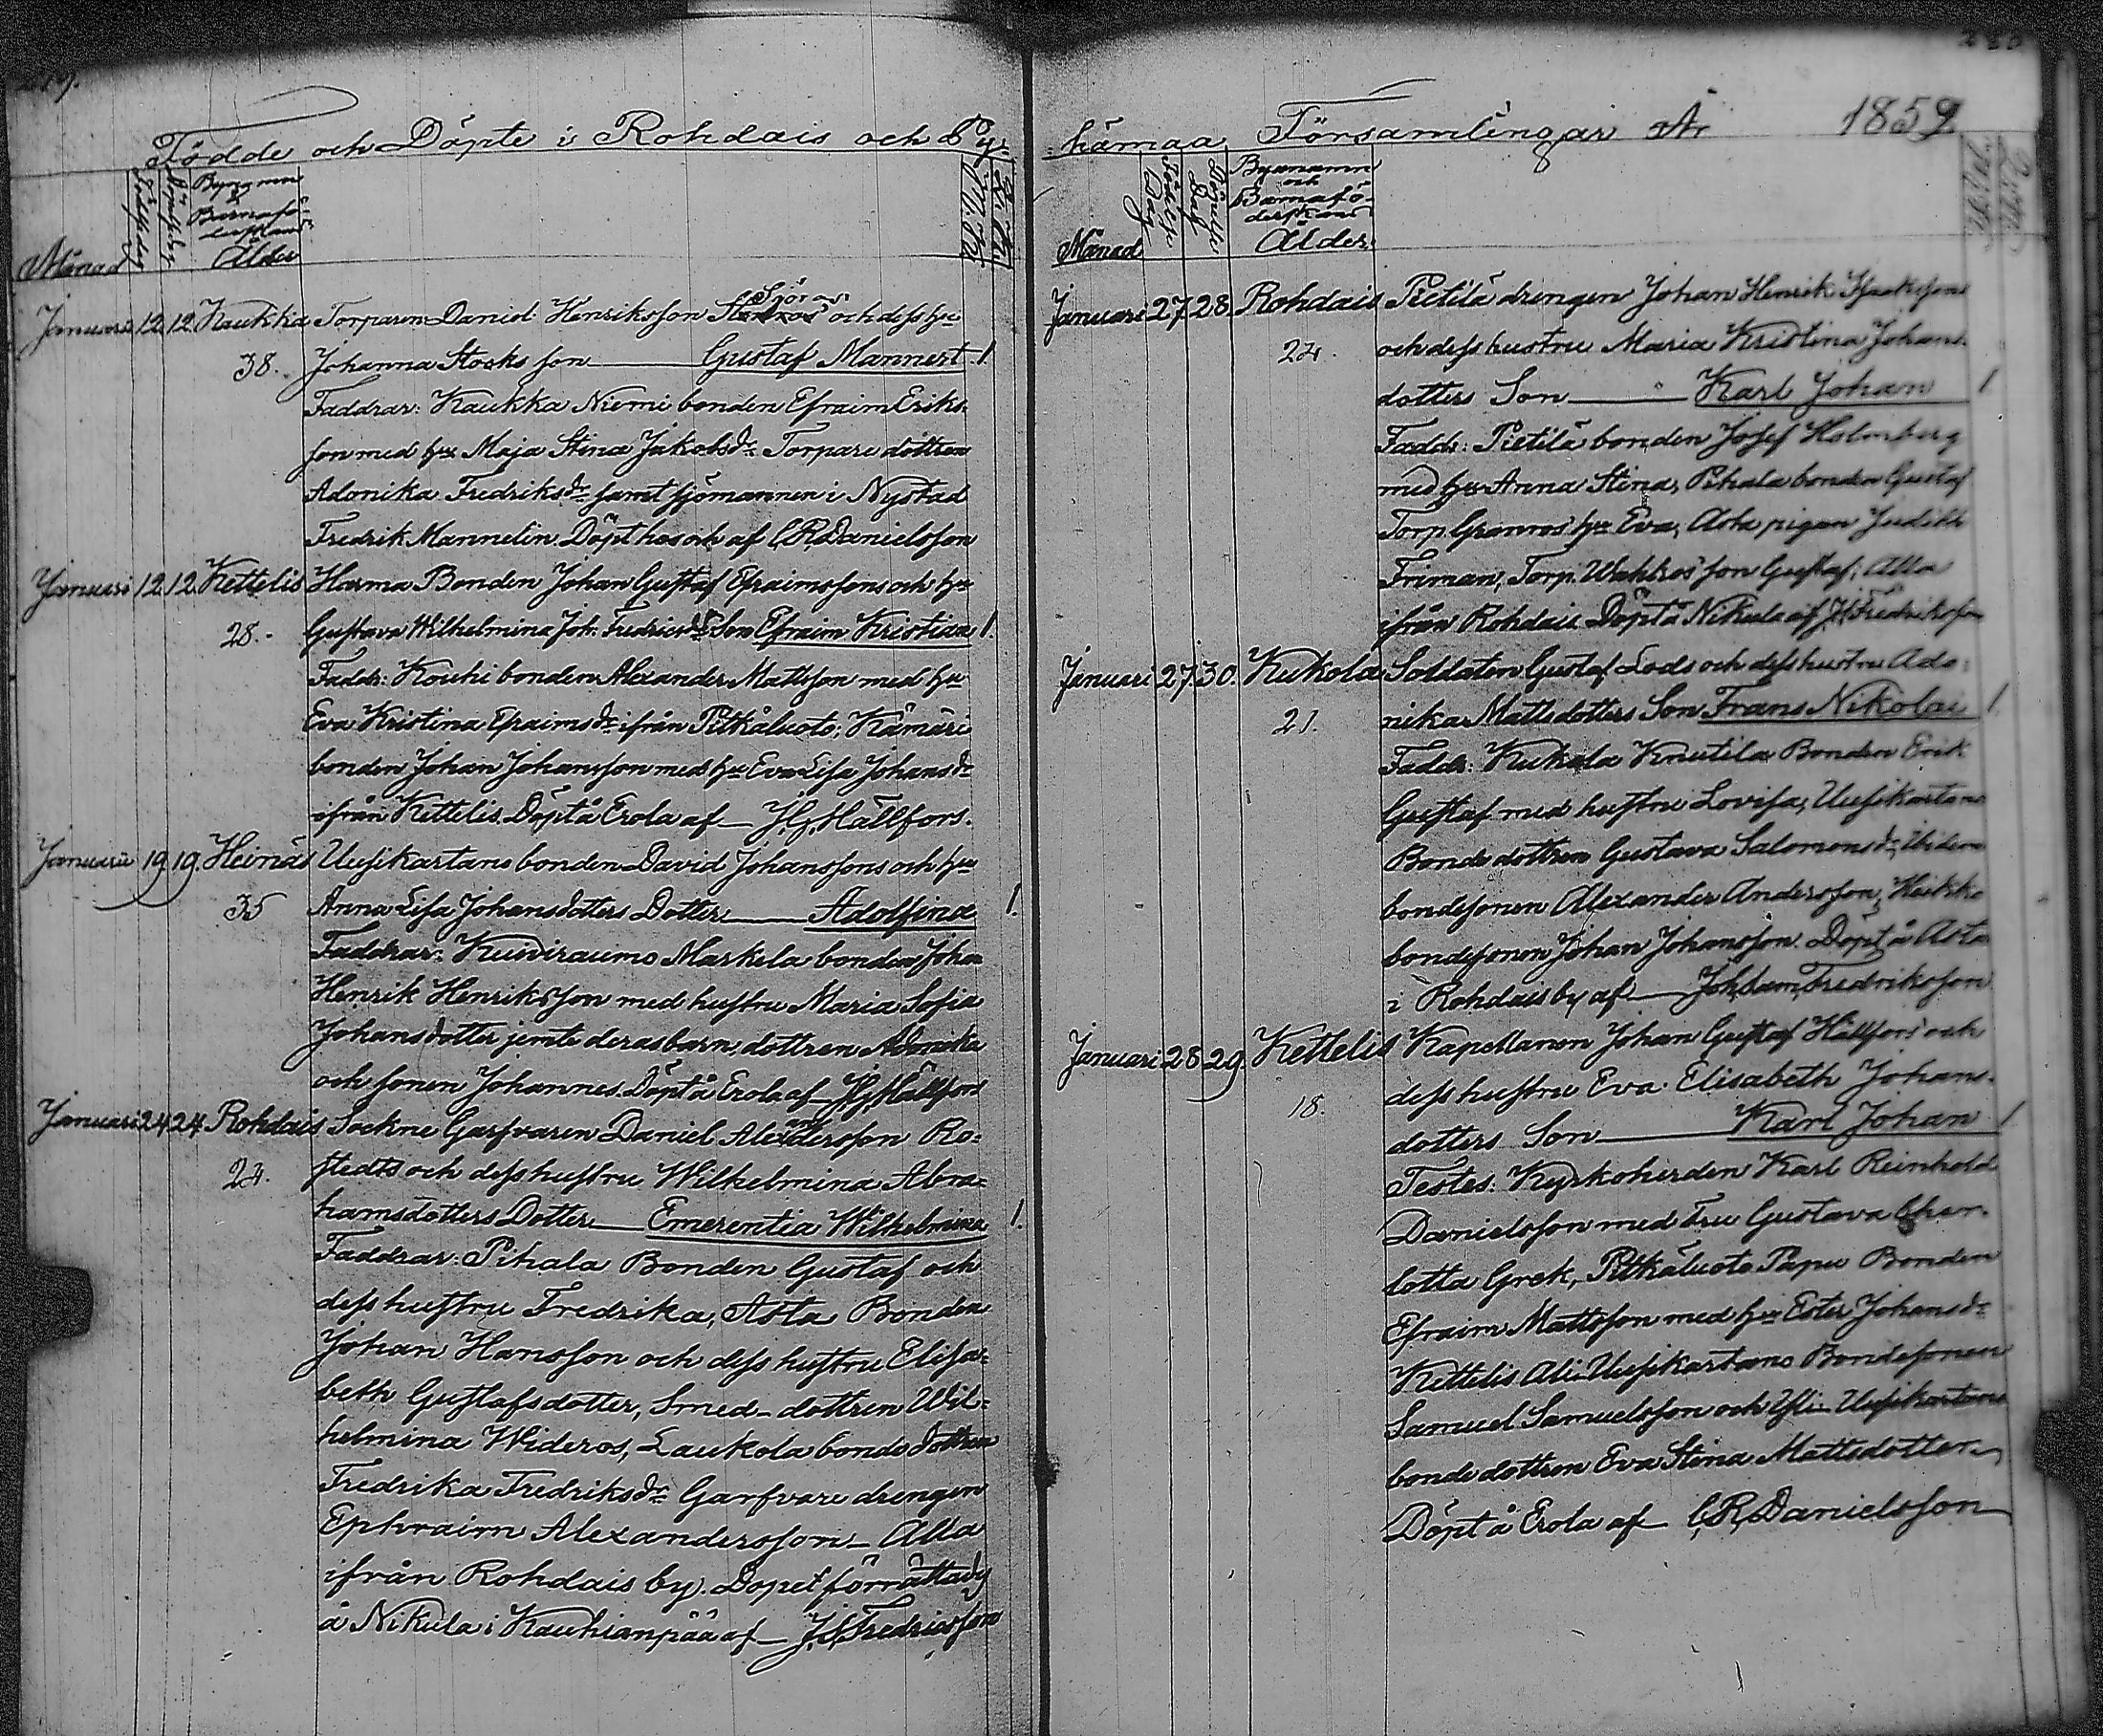 Födde och Döpte i Rohdais och Py-
Månad
Födelsedag
Byanamn
Barnafö-
Ålder
Januari 12. 12. Kaukka Torparen Daniel Henriksson Sjöros och dess hru
38. Johanna Stocks son Gustaf Mannert 1
Faddrar: Kaukka Niemi bonden Efraim Eriks-
son med hru Maja Stina Jakobsdr Torpare dottren
Adonika Fredriksdr samt sjömannen i Nystad
Fredrik Mannelin. Döpt hos och af C.R. Danielsson
Januari 12. 12. Kettelis Harma Bonden Johan Gustaf Efraimssons och hru
28. Gustava Wilhelmina Joh. Fredricsdr Son Efraim Kristian 1.
Faddr: Kouhi bonden Alexander Mattsson med hru
Eva Kristina Efraimsdr ifrån Pitkäluoto; Kämäri
bonden Johan Johansson med hru Eva Lisa Johansdr
ifrån Kettelis. Döpt å Erola af J.G. Hällfors.
Januari 19. 19. Heinäs Uusikartano bonden David Johanssons och hru
35 Anna Lisa Johansdotters Dotter Adolfina 1.
Faddrar: Kuiviraumo Markela bonden Johan
Henrik Henriksson med hustru Maria Sofia
Johansdotter jemte deras barn, dottren Adonika
och sonen Johannes. Döpt å Erola af J.G. Hällfors
Januari 24 24 Rohdais Sockne Garfvaren Daniel Alexandersson Ro-
24. stedts och dess hustru Wilhelmina Abra-
hamsdotters Dotter Emerentia Wilhelmina 1.
Faddrar: Pihala Bonden Gustaf och
dess hustru Fredrika, Asta Bonden
Johan Hansson och dess hustru Elisa-
beth Gustafsdotter, Smed-dottren Wil-
helmina Wideros, Laukola bonde dottren
Fredrika Fredriksdr Garfvare drengen
Ephraim Alexandersson - Alla
ifrån Rohdais by. Dopet förrättady
å Nikula i Kauhianpää af J.S. Fredricsson
hämaa Församlingar År 1859
Månad
Födelse Dag
Döpelse Dag
Byanamn
och
Barnafö-
derskans
Ålder.
Januari 27. 28. Rohdais Pietilä drengen Johan Henrik Isakssons
24. och dess hustru Maria Kristina Johans-
dotters Son Karl Johan 1
Faddr: Pietilä bonden Josef Holmberg
med hru Anna Stina, Pihala bonden Gustaf
Torp. Granros' hru Eva, Asta pigan Judith
Friman, Torp. Wahlros' son Gustaf; Alla
ifrån Rohdais Döpt å Nikula af J.S. Fredriksson
Januari 27. 30. Kukola Soldaten Gustaf Lods och dess hustru Ado-
21. nika Mattsdotters Son Frans Nikolai 1
Faddr. Kukola Knutila Bonden Erik
Gustaf med hustru Lovisa, Uusikartano
Bonde dottren Gustava Salomonsdr, Ibidem
bondesonen Alexander Andersson, Heikke
bondesonen Johan Johansson. Döpt å Asta
i Rohdais by af Joh. Sam. Fredriksson
Januari 28 29. Kettelis Kapellanen Johan Gustaf Hällfors' och
18. dess hustru Eva Elisabeth Johans-
dotters Son Karl Johan 1
Testes. Kyrkoherden Karl Reinhold
Danielsson med Fru Gustava Char-
lotta Grek, Pitkäluoto Papu Bonden
Efraim Mattsson med hru Ester Johansdr
Kettelis Ali-Uusikartano Bondesonen
Samuel Samuelsson och Yli-Uusikartano
bonde dottren Eva Stina Mattsdotter
Döpt å Erola af C.R. Danielsson